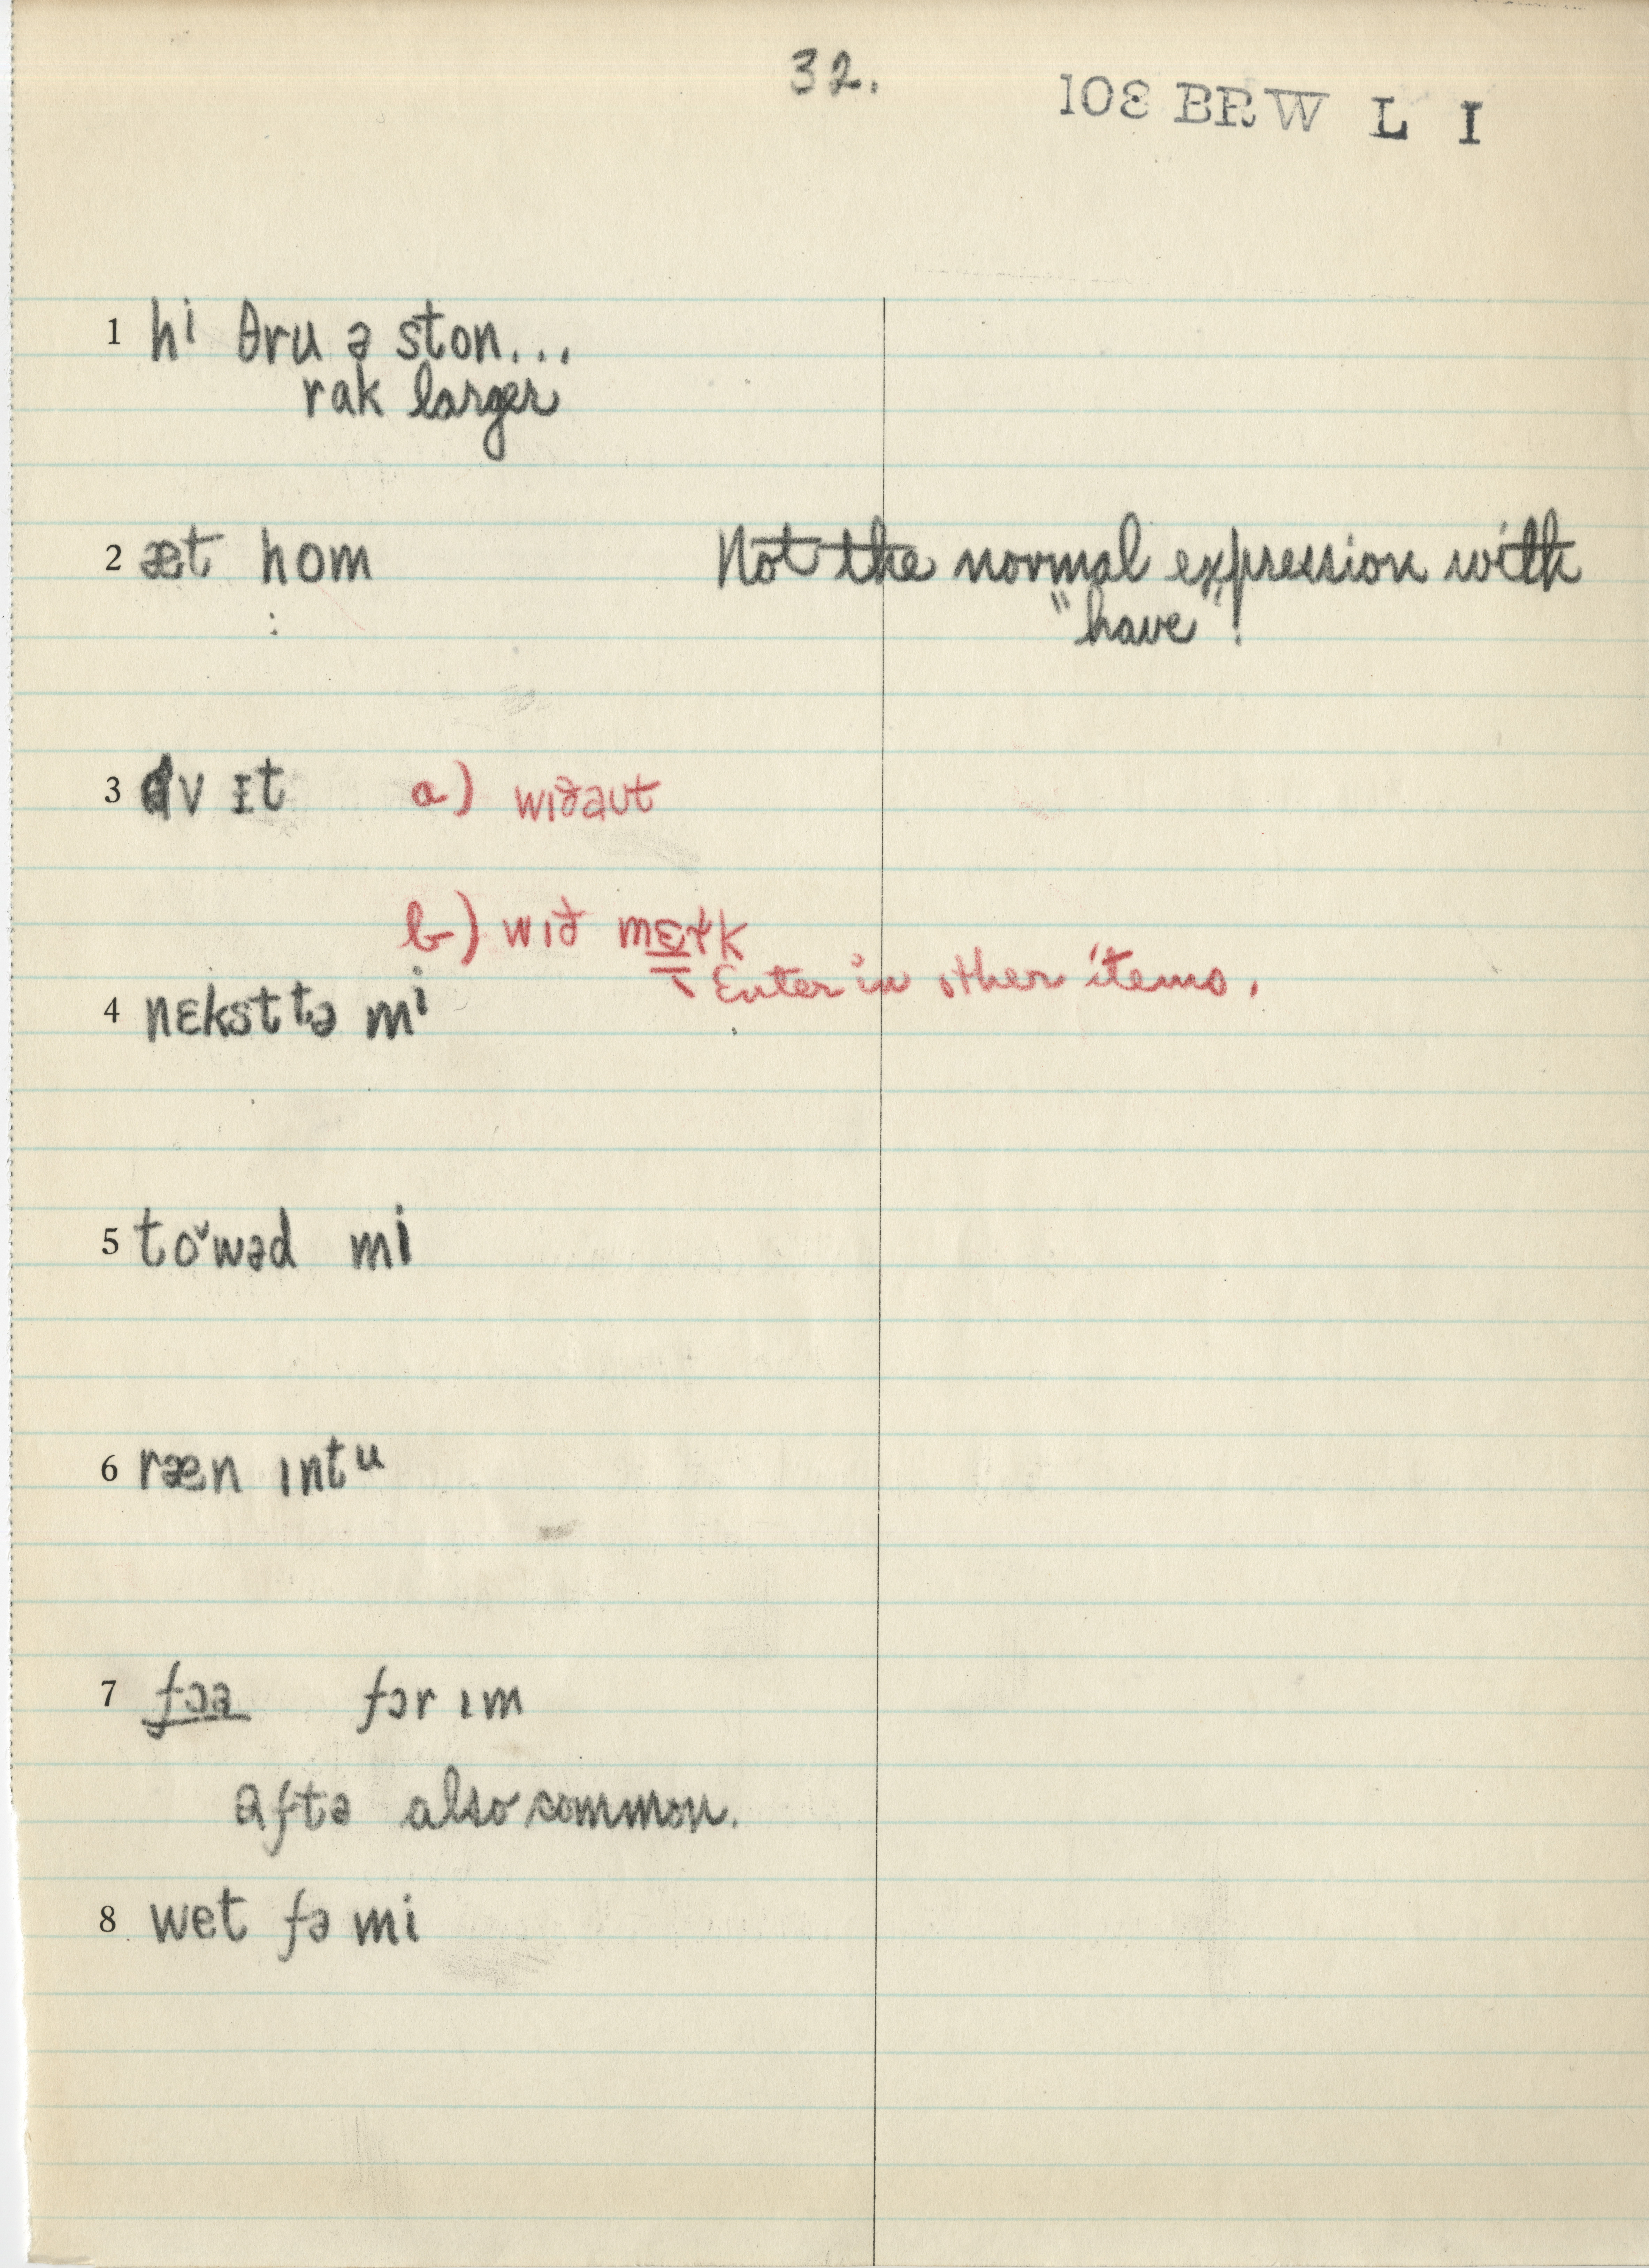 32.
108 BRW L I
1 hi θru ə ston...
rak larger
2 æt hom Not the normal expression with
"have"!
3 ɑv ɪt a) wɪðaut
b) wɪð mɛɫk
Enter in other items.
4 nɛkst tə mi
5 toˇwəd mi
6 ræn ɪntu
7 fɔə fɔr ɪm
aftə also common.
8 wet fə mi